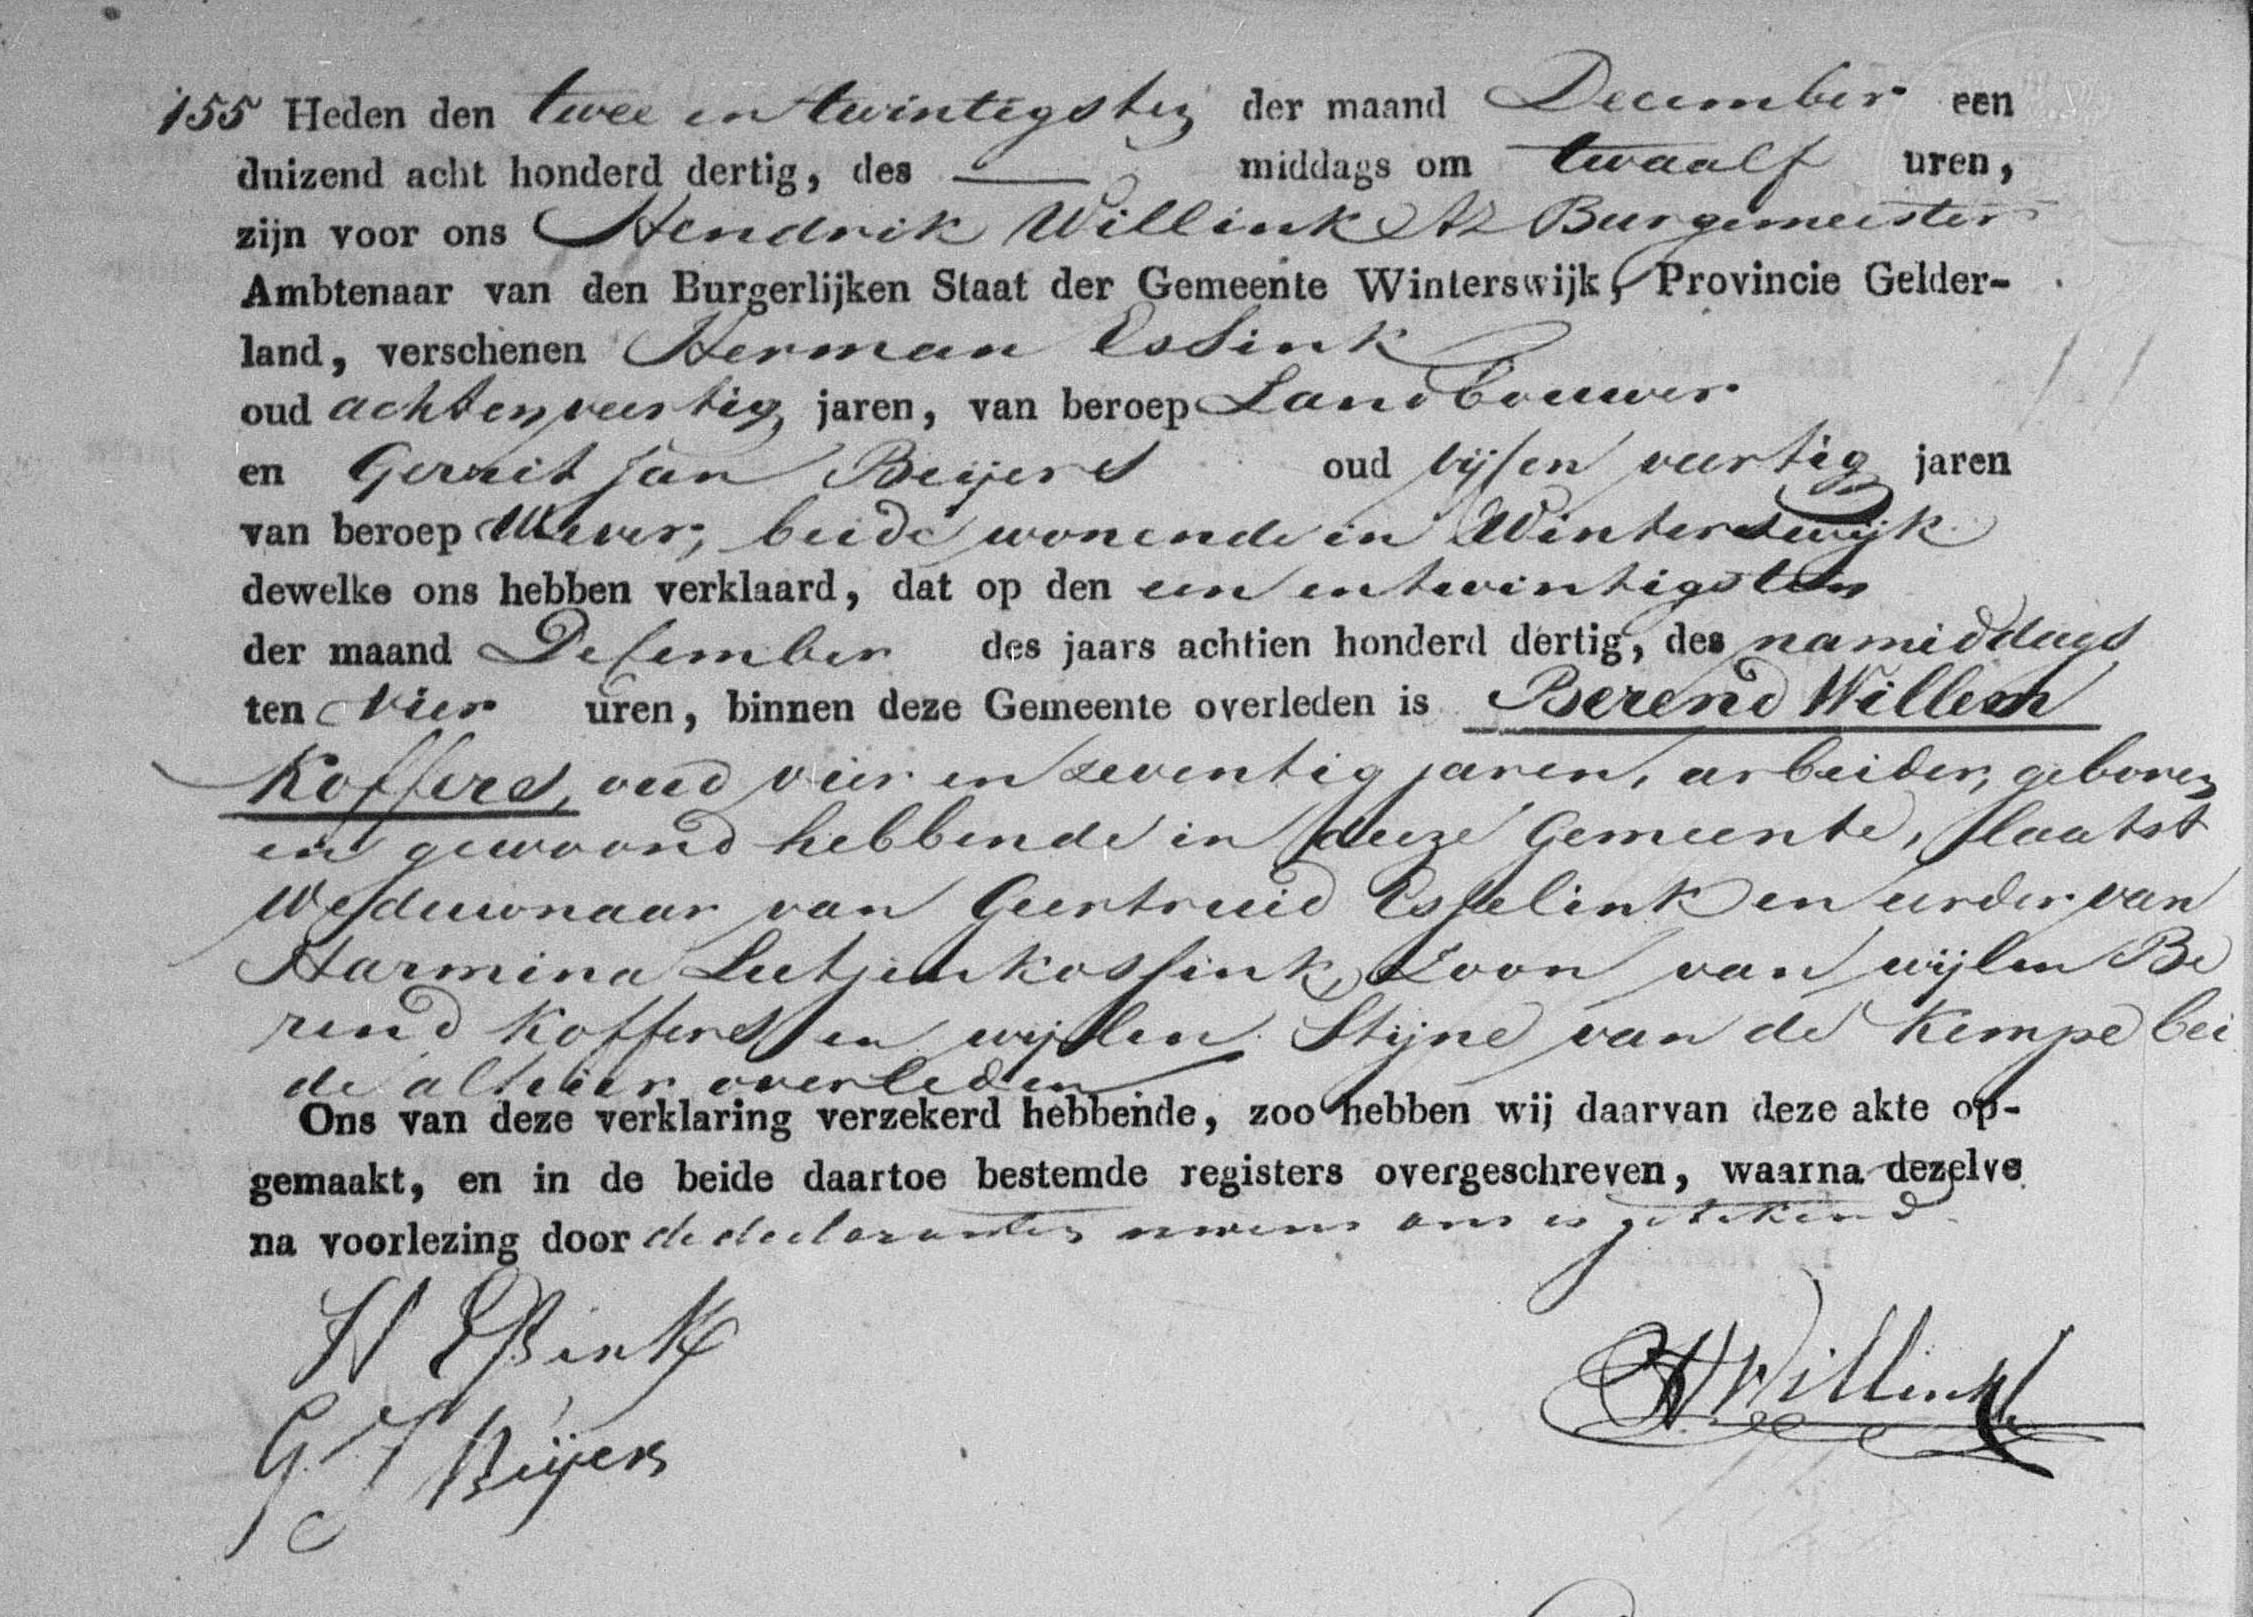 155 Heden den twee en twintigsten der maand December een
duizend acht honderd dertig, des — middags om twaalf uren,
zijn voor ons Hendrik Willink Az Burgemeester
Ambtenaar van den Burgerlijken Staat der Gemeente Winterswijk, Provincie Gelder-
land, verschenen Herman Essink
oud achtenveertig jaren, van beroep Landbouwer
en Gerrit Jan Beijers oud vijf en veertig jaren
van beroep Wever, beide wonende in Winterswijk
dewelke ons hebben verklaard, dat op den een en twintigsten
der maand December des jaars achtien honderd dertig, des namiddags
ten vier uren, binnen deze Gemeente overleden is Berend Willem
Koffers, oud vier en zeventig jaren, arbeider, geboren
en gewoond hebbende in deeze Gemeente, laatst
Weduwnaar van Geertruid Esselink en eerder van
Harmina Lutjenkossink, Zoon van wijlen Be
rend Koffers en wijlen Stijne van de Kempe bei
de alhier overleden
Ons van deze verklaring verzekerd hebbende, zoo hebben wij daarvan deze akte op-
gemaakt, en in de beide daartoe bestemde registers overgeschreven, waarna dezelve
na voorlezing door de declaranten nevens ons is geteekend
H Essink
HWillink
G J Beijers